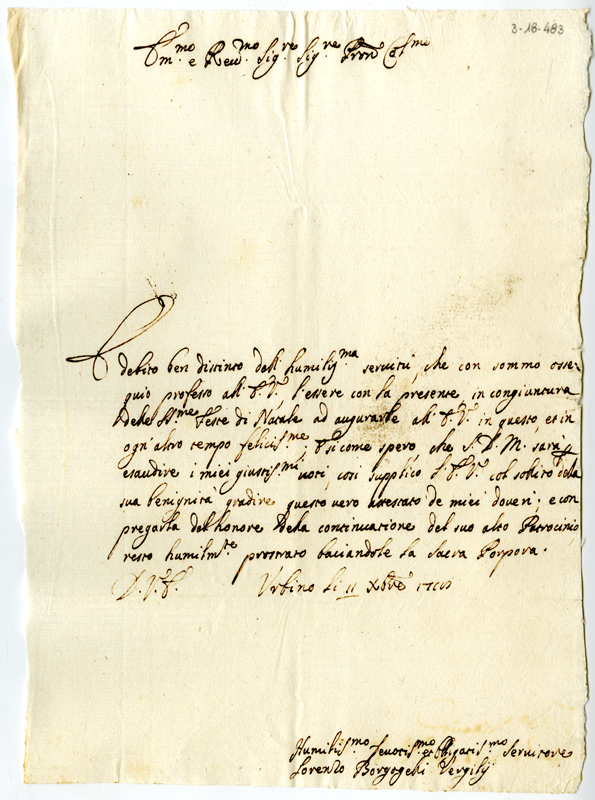 3-18-483
Em.mo e Rev.mo Sig.re Sig.re Pron Col.mo
È debito ben distinto dell humiliss.ma servitù, che con sommo osse-
quio professo all' E.V., l'essere con la presente in congiuntura
delle SS.me Feste di Natale ad augurarle all' E.V. in questo, et in
ogn' altro tempo feliciss.me; E si come spero, che S.D.M. sarà p
esaudire i miei giustiss.mi voti, così supplico l' E.V. col solito della
sua benignità gradire questo vero attestato de miei doveri; e con
pregarla del honore della continuatione del suo alto Patrocinio
resto humilm.te prostrato baciandole la Sacra Porpora.
D. V. E. Urbino li 11 Xbre
Humiliss.mo Devotis.mo et Obligatis.mo Servitore
Lorenzo Borgogelli Vergilij